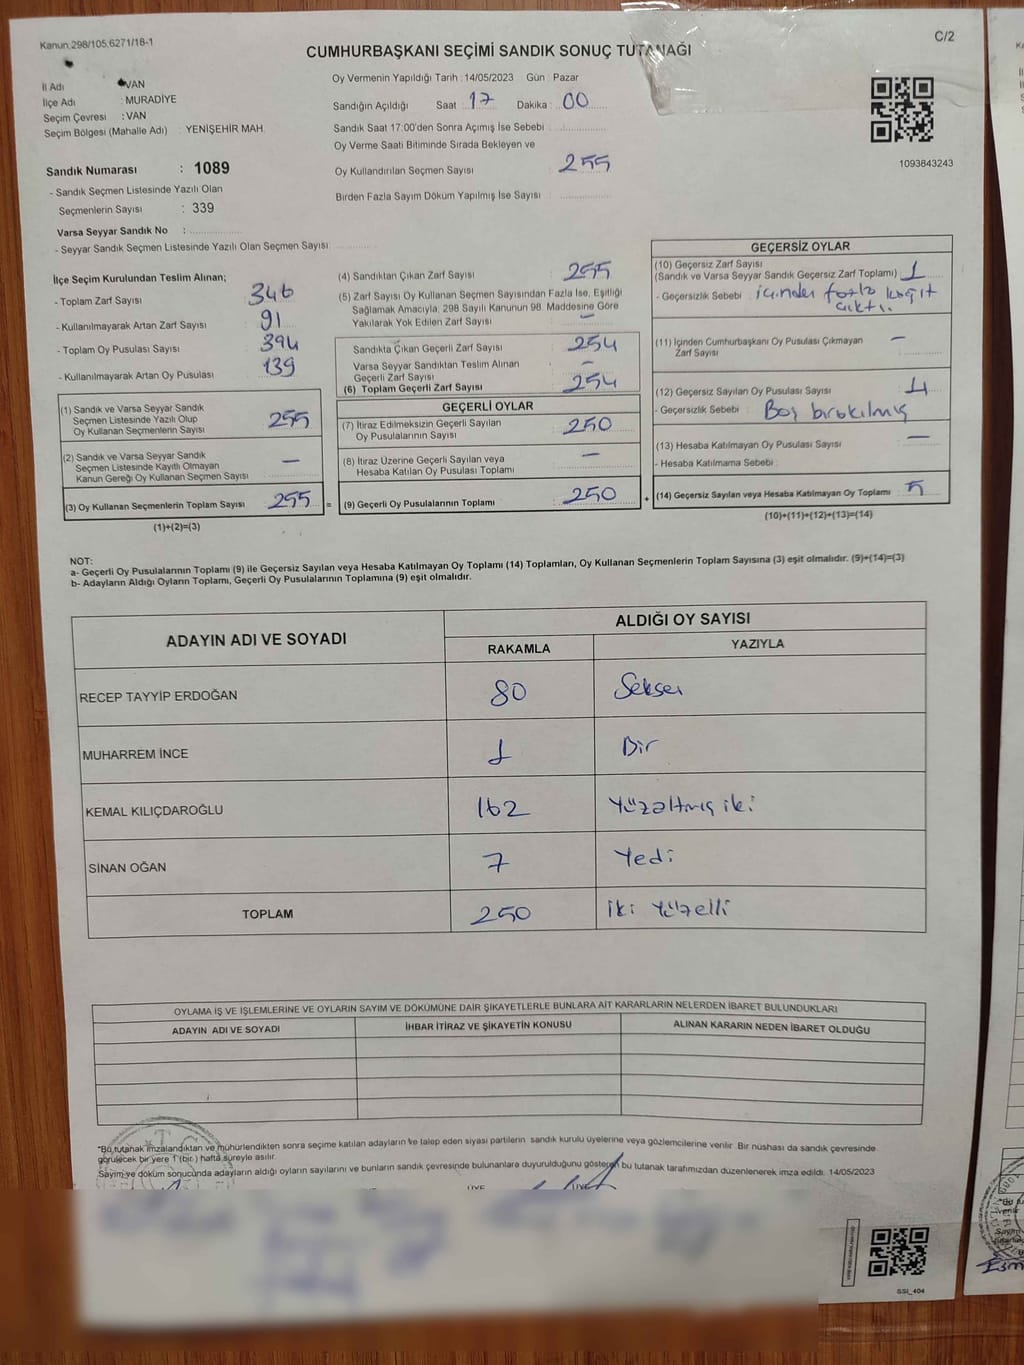 Kanun.298/105,6271/18-1
C/2
CUMHURBAŞKANI SEÇİMİ SANDIK SONUÇ TUTANAĞI
İl Adı : VAN
İlçe Adı : MURADİYE
Seçim Çevresi : VAN
Seçim Bölgesi (Mahalle Adı) : YENİŞEHİR MAH.
Oy Vermenin Yapıldığı Tarih : 14/05/2023 Gün : Pazar
Sandığın Açıldığı Saat : 17 Dakika : 00
Sandık Saat 17:00'den Sonra Açımış İse Sebebi :
Oy Verme Saati Bitiminde Sırada Bekleyen ve
Oy Kullandırılan Seçmen Sayısı : 255
Birden Fazla Sayım Döküm Yapılmış İse Sayısı :
1093843243
Sandık Numarası : 1089
- Sandık Seçmen Listesinde Yazılı Olan
Seçmenlerin Sayısı : 339
Varsa Seyyar Sandık No :
- Seyyar Sandık Seçmen Listesinde Yazılı Olan Seçmen Sayısı:
İlçe Seçim Kurulundan Teslim Alınan;
- Toplam Zarf Sayısı 346
- Kullanılmayarak Artan Zarf Sayısı 91
- Toplam Oy Pusulası Sayısı 394
- Kullanılmayarak Artan Oy Pusulası 139
(1) Sandık ve Varsa Seyyar Sandık
Seçmen Listesinde Yazılı Olup
Oy Kullanan Seçmenlerin Sayısı 255
(2) Sandık ve Varsa Seyyar Sandık
Seçmen Listesinde Kayıtlı Olmayan
Kanun Gereği Oy Kullanan Seçmen Sayısı —
(3) Oy Kullanan Seçmenlerin Toplam Sayısı 255 =
(1)+(2)=(3)
(4) Sandıktan Çıkan Zarf Sayısı 255
(5) Zarf Sayısı Oy Kullanan Seçmen Sayısından Fazla İse, Eşitliği
Sağlamak Amacıyla, 298 Sayılı Kanunun 98. Maddesine Göre
Yakılarak Yok Edilen Zarf Sayısı —
Sandıkta Çıkan Geçerli Zarf Sayısı 254
Varsa Seyyar Sandıktan Teslim Alınan
Geçerli Zarf Sayısı —
(6) Toplam Geçerli Zarf Sayısı 254
GEÇERLİ OYLAR
(7) İtiraz Edilmeksizin Geçerli Sayılan
Oy Pusulalarının Sayısı 250
(8) İtiraz Üzerine Geçerli Sayılan veya
Hesaba Katılan Oy Pusulası Toplamı —
(9) Geçerli Oy Pusulalarının Toplamı 250 +
GEÇERSİZ OYLAR
(10) Geçersiz Zarf Sayısı
(Sandık ve Varsa Seyyar Sandık Geçersiz Zarf Toplamı) 1
- Geçersizlik Sebebi : içinden fazla kağıt
çıktı.
(11) İçinden Cumhurbaşkanı Oy Pusulası Çıkmayan
Zarf Sayısı —
(12) Geçersiz Sayılan Oy Pusulası Sayısı 4
- Geçersizlik Sebebi : Boş bırakılmış
(13) Hesaba Katılmayan Oy Pusulası Sayısı —
- Hesaba Katılmama Sebebi :
(14) Geçersiz Sayılan veya Hesaba Katılmayan Oy Toplamı 5
(10)+(11)+(12)+(13)=(14)
NOT:
a- Geçerli Oy Pusulalarının Toplamı (9) ile Geçersiz Sayılan veya Hesaba Katılmayan Oy Toplamı (14) Toplamları, Oy Kullanan Seçmenlerin Toplam Sayısına (3) eşit olmalıdır. (9)+(14)=(3)
b- Adayların Aldığı Oyların Toplamı, Geçerli Oy Pusulalarının Toplamına (9) eşit olmalıdır.
ADAYIN ADI VE SOYADI
ALDIĞI OY SAYISI
RAKAMLA YAZIYLA
RECEP TAYYİP ERDOĞAN 80 Seksen
MUHARREM İNCE 1 Bir
KEMAL KILIÇDAROĞLU 162 Yüzaltmış iki
SİNAN OĞAN 7 Yedi
TOPLAM 250 iki Yüzelli
OYLAMA İŞ VE İŞLEMLERİNE VE OYLARIN SAYIM VE DÖKÜMÜNE DAİR ŞİKAYETLERLE BUNLARA AİT KARARLARIN NELERDEN İBARET BULUNDUKLARI
ADAYIN ADI VE SOYADI İHBAR İTİRAZ VE ŞİKAYETİN KONUSU ALINAN KARARIN NEDEN İBARET OLDUĞU
*Bu tutanak imzalandıktan ve mühürlendikten sonra seçime katılan adayların ve talep eden siyasi partilerin sandık kurulu üyelerine veya gözlemcilerine verilir. Bir nüshası da sandık çevresinde
görülecek bir yere 1 (bir) hafta süreyle asılır.
Sayım ve döküm sonucunda adayların aldığı oyların sayılarını ve bunların sandık çevresinde bulunanlara duyurulduğunu gösteren bu tutanak tarafımızdan düzenlenerek imza edildi. 14/05/2023
ÜYE
SSI_404